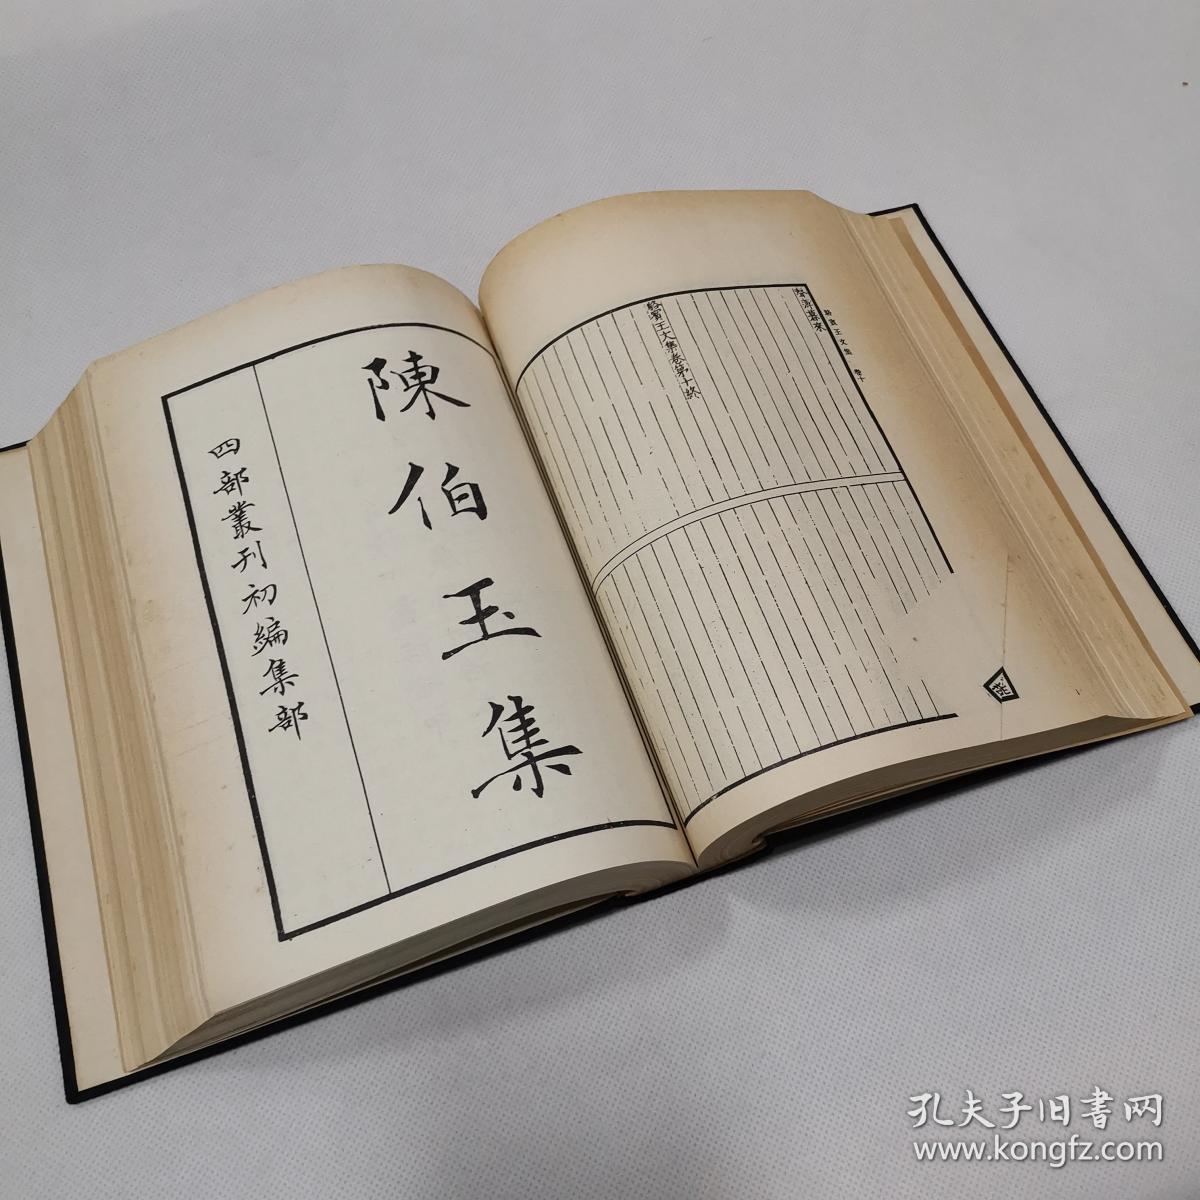 駱賓王文集 卷十
駱賓王文集卷第十終
陳伯玉集
四部叢刊初編集部
孔夫子旧書网
www.kongfz.com